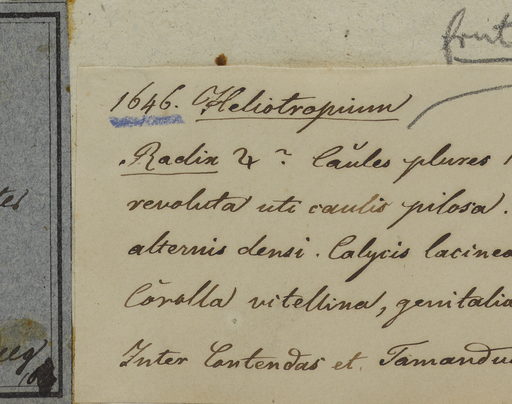 fruit
1646. Heliotropium
Radix ♃ ?. Caules plures
revoluta uti caulis pilosa.
alternis densi. Calycis lacinea
Corolla vitellina, genitalia
Inter Contendas et Tamandu